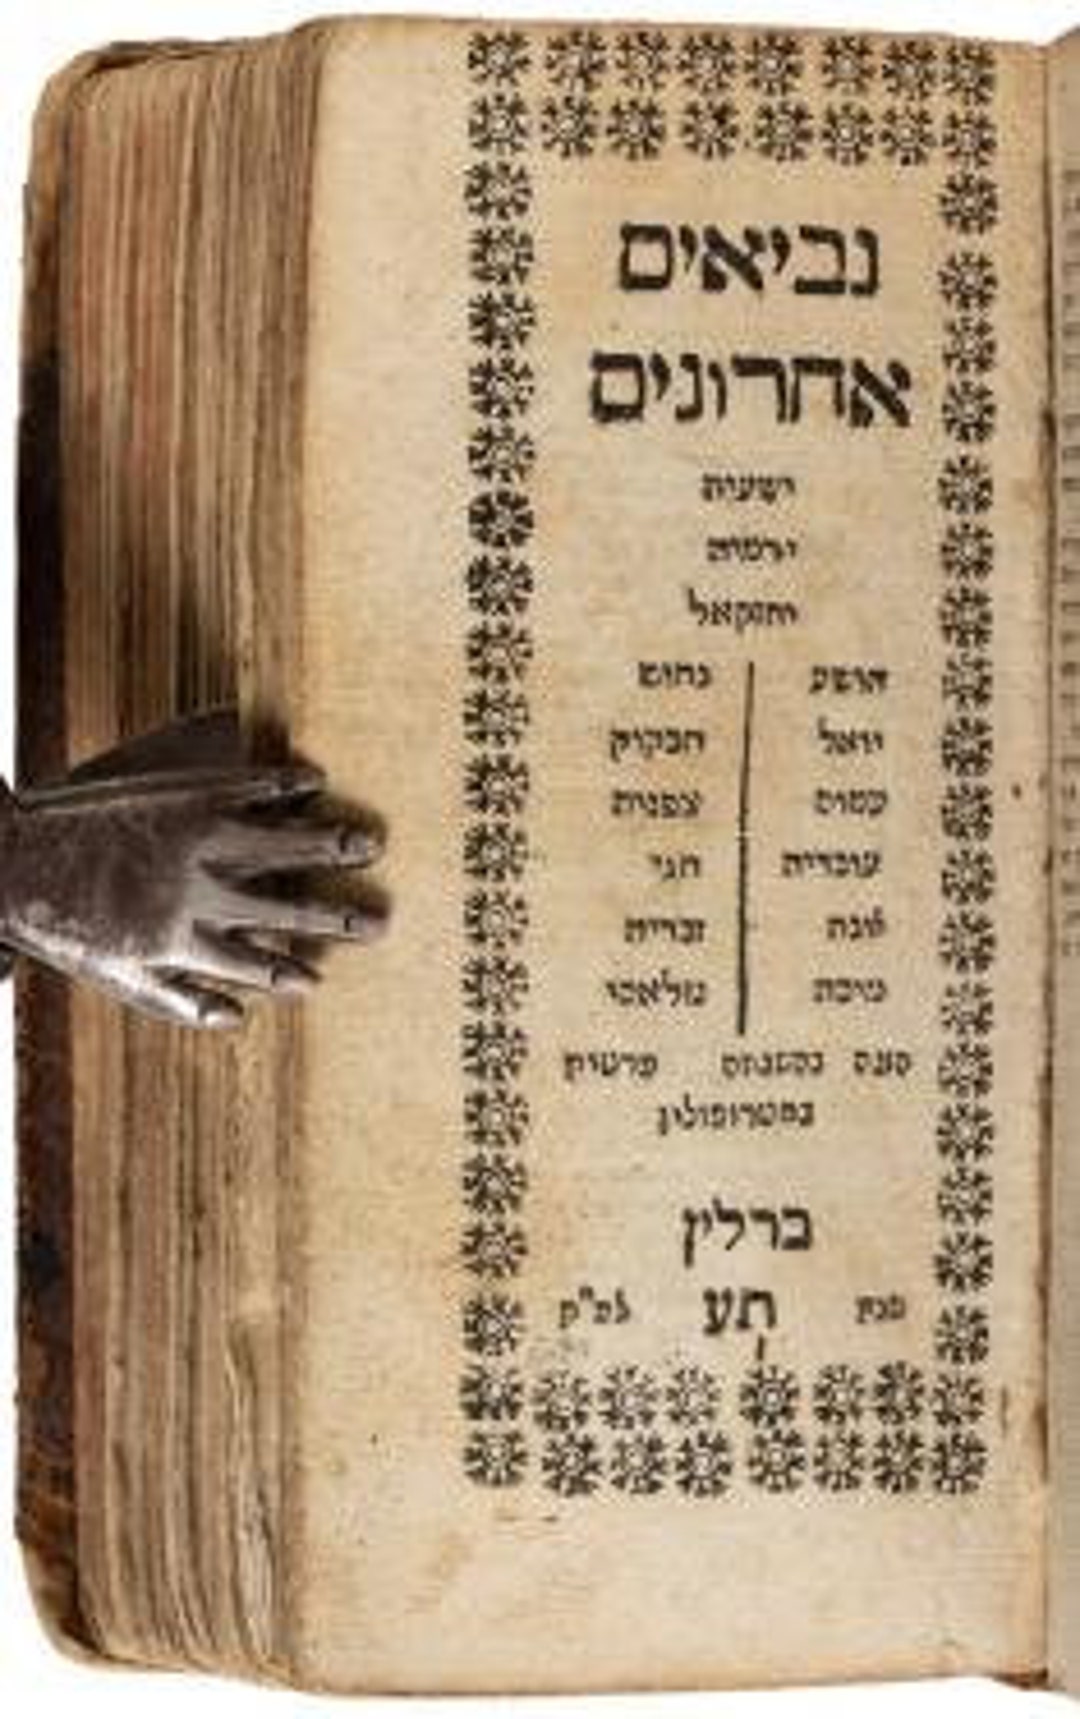 נביאים
אחרונים
ישעיה
ירמיה
יחזקאל
הושע נחום
יואל חבקוק
עמוס צפניה
עובדיה חגי
יונה זכריה
מיכה מלאכי
במטרופולין
ברלין
שנת תע לפ"ק